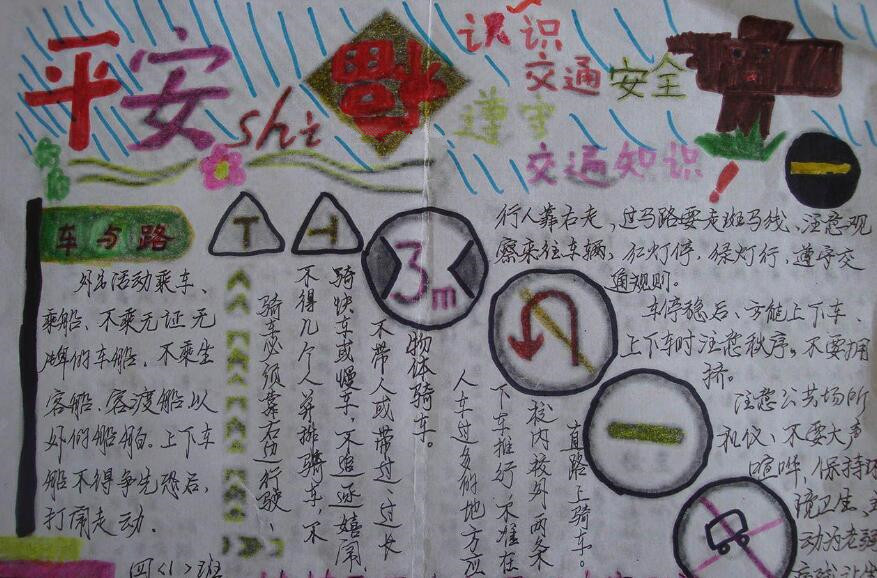 平安shi福
认识
交通安全
遵守
交通知识!
车与路
外出活动乘车、
乘船、不乘无证无
牌的车船、不乘生
客船、客渡船以
外的船舶。上下车
船不得争先恐后,
打闹走动.
四<1>班
骑车必须靠右边行驶、
不得几个人并排骑车、不
骑快车或慢车,不追逐嬉闹,
不带人或带过、过长
物体骑车。
3m
人车过多的地方应
下车推行,不准在
校内校外两条
直路上骑车。
行人靠右走,过马路要走斑马线、注意观
察来往车辆,红灯停,绿灯行,遵守交
通规则。
车停稳后、方能上下车、
上下车时注意秩序,不要拥
挤。
注意公共场所
礼仪、不要大声
喧哗,保持环
境卫生,主
动为老弱